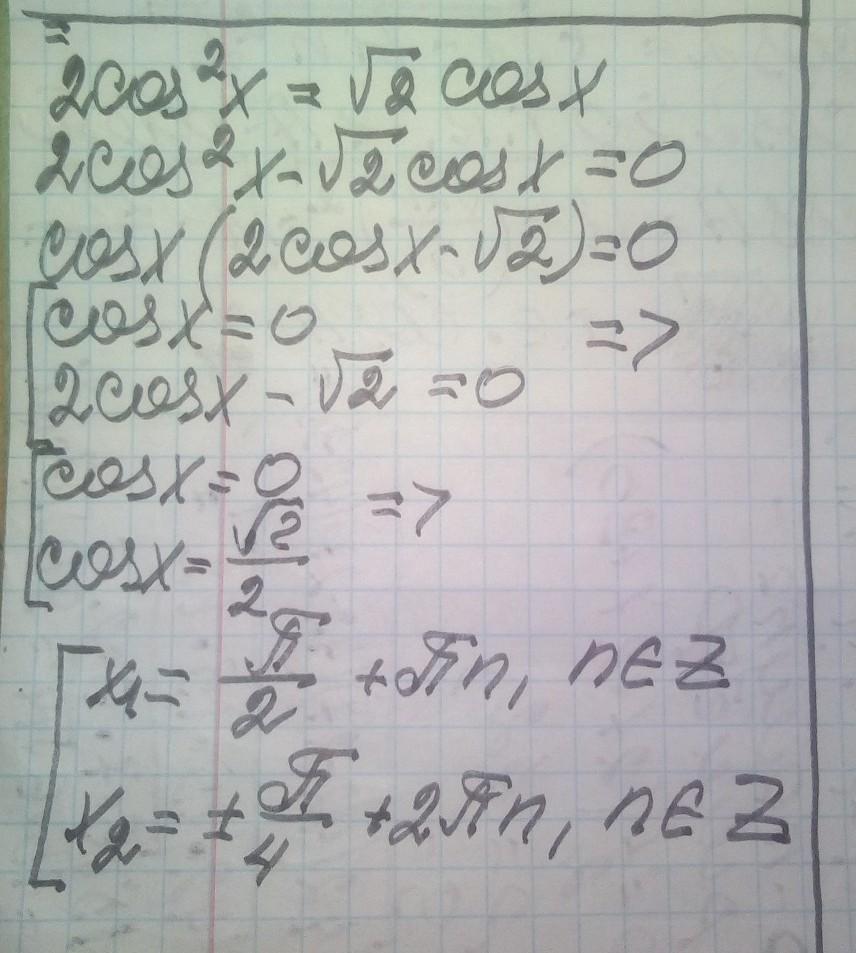 2cos²x = √2 cosx
2cos²x - √2 cosx = 0
cosx(2cosx - √2) = 0
[cosx = 0 =>
2cosx - √2 = 0
[cosx = 0 =>
cosx = √2/2
[x₁ = π/2 + πn, n∈Z
x₂ = ± π/4 + 2πn, n∈Z